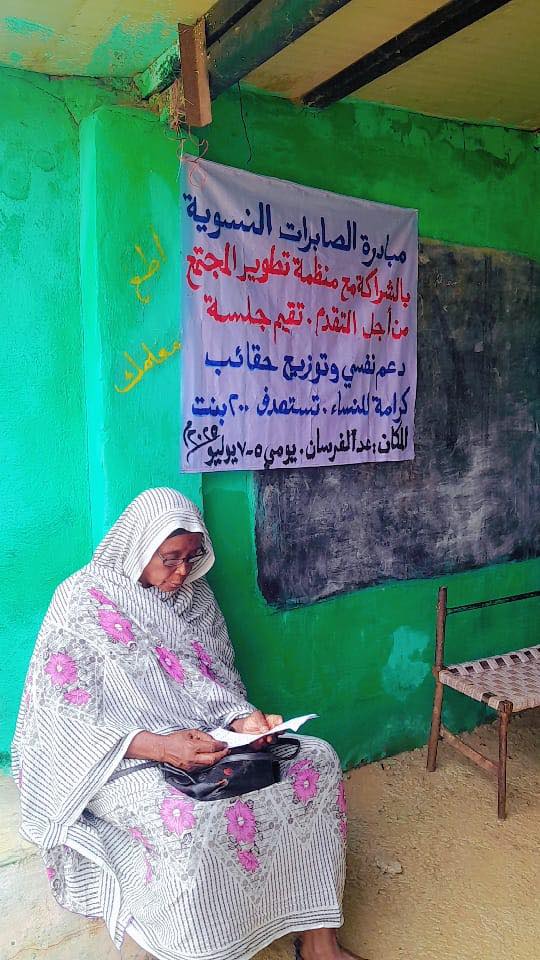 مبادرة الصابرات النسوية
بالشراكة مع منظمة تطوير المجتمع
من أجل التقدم . تقيم جلسة
دعم نفسي وتوزيع حقائب
كرامة للنساء . تستهدف ٢٠٠ بنت
المكان : عد الفرسان . يومي ٥-٧ يوليو ٢٠٢٥م
اطع
معلمك